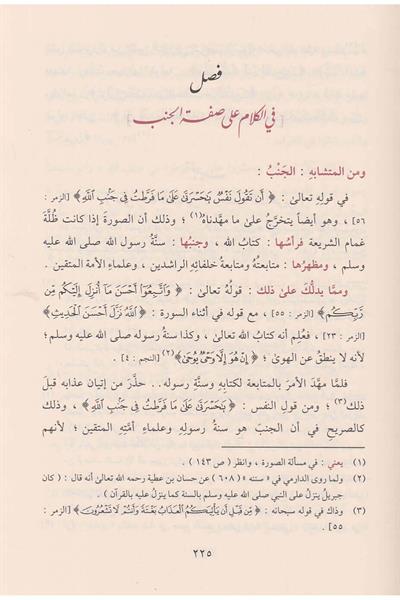 فصل
[في الكلام على صفة الجنب]
ومن المتشابهِ : الجَنْبُ :
في قوله تعالىٰ : ﴿ أَن تَقُولَ نَفْسٌ يَٰحَسْرَتَىٰ عَلَىٰ مَا فَرَّطتُ فِي جَنۢبِ ٱللَّهِ ﴾ [الزمر :
٥٦] ، وهو أيضاً يتخرَّجُ علىٰ ما مهَّدناهُ(١) ؛ وذلك أن الصورةَ إذا كانت ظُلَّةَ
غمام الشريعة فرأسُها : كتابُ الله ، وجنبُها : سنَّةُ رسول الله صلى الله عليه
وسلم ، ومظهرُها : متابعتُهُ ومتابعةُ خلفائِهِ الراشدين ، وعلماءِ الأمة المتقين .
وممَّا يدلُّكَ علىٰ ذلك : قولُهُ تعالىٰ : ﴿ وَٱتَّبِعُوٓا۟ أَحْسَنَ مَآ أُنزِلَ إِلَيْكُم مِّن
رَّبِّكُم ﴾ [الزمر : ٥٥] ، مع قوله في أثناء السورة : ﴿ ٱللَّهُ نَزَّلَ أَحْسَنَ ٱلْحَدِيثِ ﴾
[الزمر : ٢٣] ، فعُلِم أنه كتابُ الله تعالىٰ ، وكذا سنةُ رسوله صلى الله عليه وسلم ؛
لأنه لا ينطقُ عن الهوىٰ ؛ ﴿ إِنْ هُوَ إِلَّا وَحْىٌ يُوحَىٰ ﴾(٢) [النجم : ٤] .
فلمَّا مهَّدَ الأمرَ بالمتابعة لكتابِهِ وسنَّةِ رسوله . . حذَّرَ من إتيان عذابه قبل
ذلك(٣) ؛ ومن قول النفس : ﴿ يَٰحَسْرَتَىٰ عَلَىٰ مَا فَرَّطتُ فِي جَنۢبِ ٱللَّهِ ﴾ ، وذلك
كالصريح في أن الجنبَ هو سنةُ رسولِهِ وعلماءِ أمَّتِهِ المتقين ؛ لأنهم
(١) يعني : في مسألة الصورة ، وانظر ( ص ١٤٣ ) .
(٢) ولما روى الدارمي في « سننه » ( ٦٠٨ ) عن حسان بن عطية رحمه الله تعالىٰ أنه قال : ( كان
جبريلُ ينزلُ على النبي صلى الله عليه وسلم بالسنة كما ينزلُ عليه بالقرآن ) .
(٣) وذلك في قوله سبحانه : ﴿ مِّن قَبْلِ أَن يَأْتِيَكُمُ ٱلْعَذَابُ بَغْتَةً وَأَنتُمْ لَا تَشْعُرُونَ ﴾ [الزمر :
٥٥] .
٢٢٥